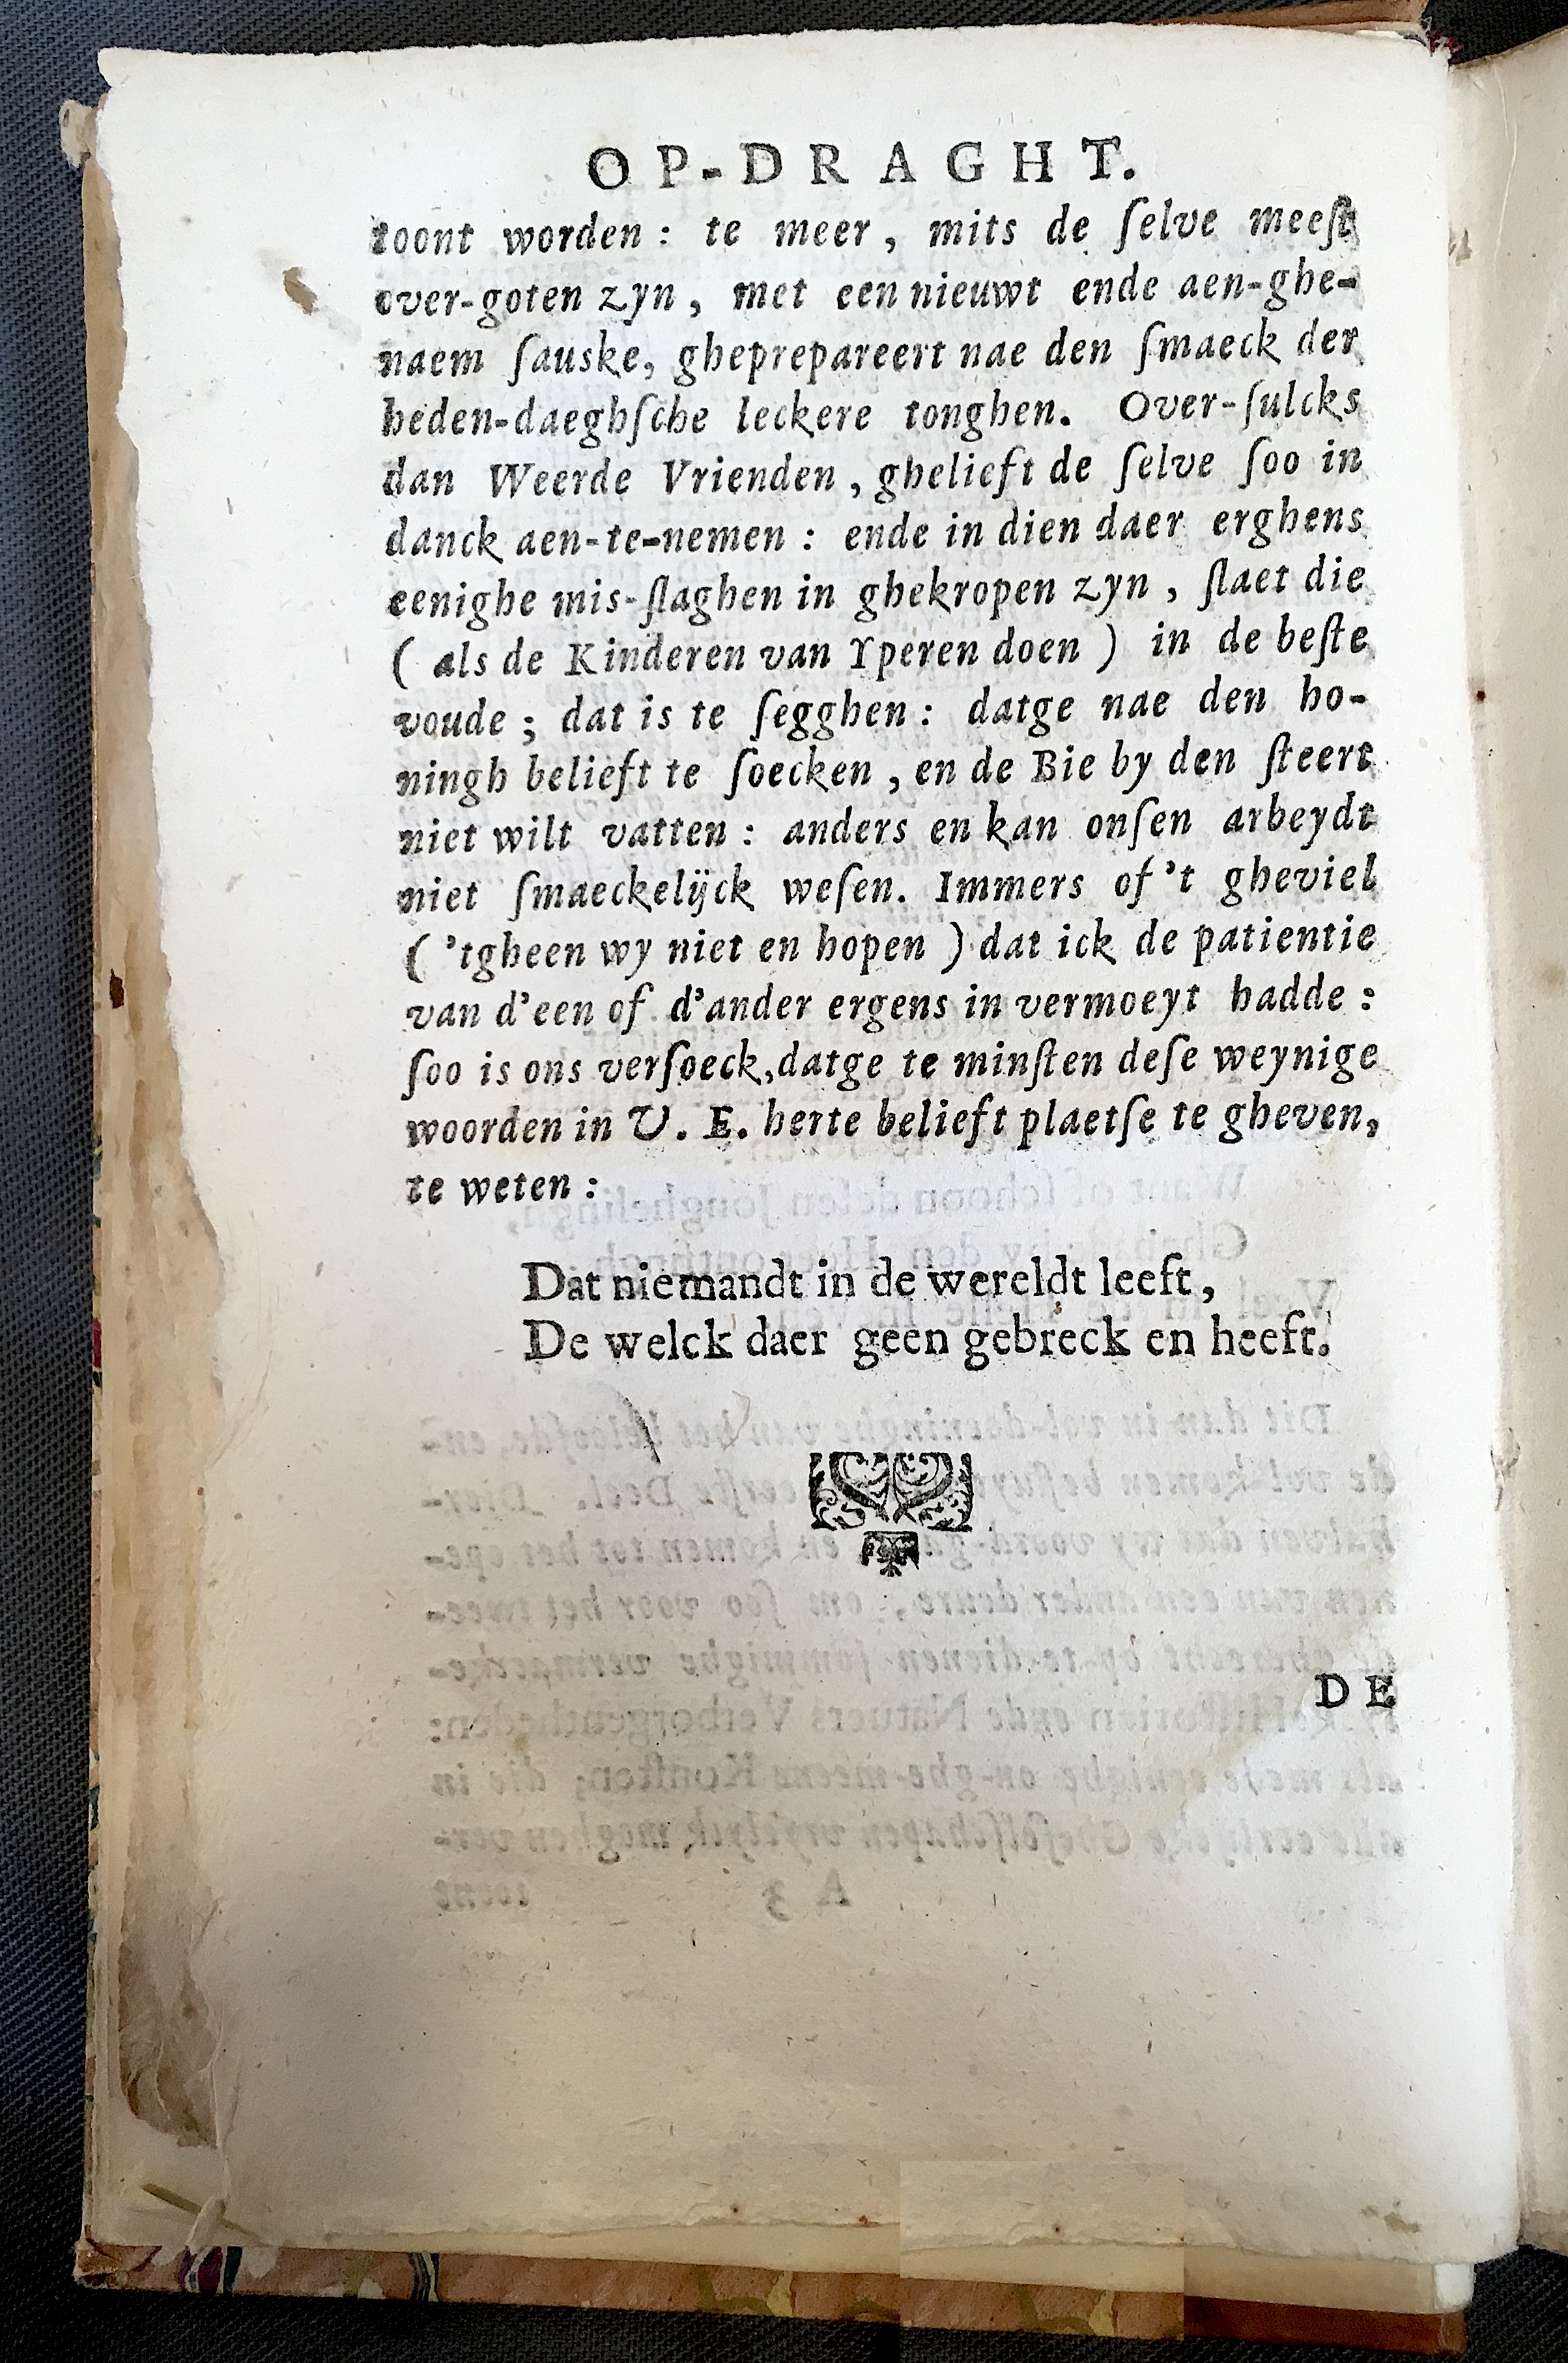 OP-DRAGHT.
toont worden : te meer, mits de ſelve meeſt
over-goten zyn, met een nieuwt ende aen-ghe-
naem ſauske, ghepreparеert nae den ſmaeck der
heden-daeghſche leckere tonghen. Over-ſulcks
dan Weerde Vrienden, ghelieft de ſelve ſoo in
danck aen-te-nemen : ende in dien daer erghens
eenighe mis-ſlaghen in ghekropen zyn, ſlaet die
( als de Kinderen van Yperen doen ) in de beſte
voude ; dat is te ſegghen : datge nae den ho-
ningh belieft te ſoecken, en de Bie by den ſteert
niet wilt vatten : anders en kan onſen arbeydt
niet ſmaeckelijck weſen. Immers of 't gheviel
( 'tgheen wy niet en hopen ) dat ick de patientie
van d'een of d'ander ergens in vermoeyt hadde :
ſoo is ons verſoeck, datge te minſten deſe weynige
woorden in U. E. herte belieft plaetſe te gheven,
te weten :
Dat niemandt in de wereldt leeft,
De welck daer geen gebreck en heeft.
DE